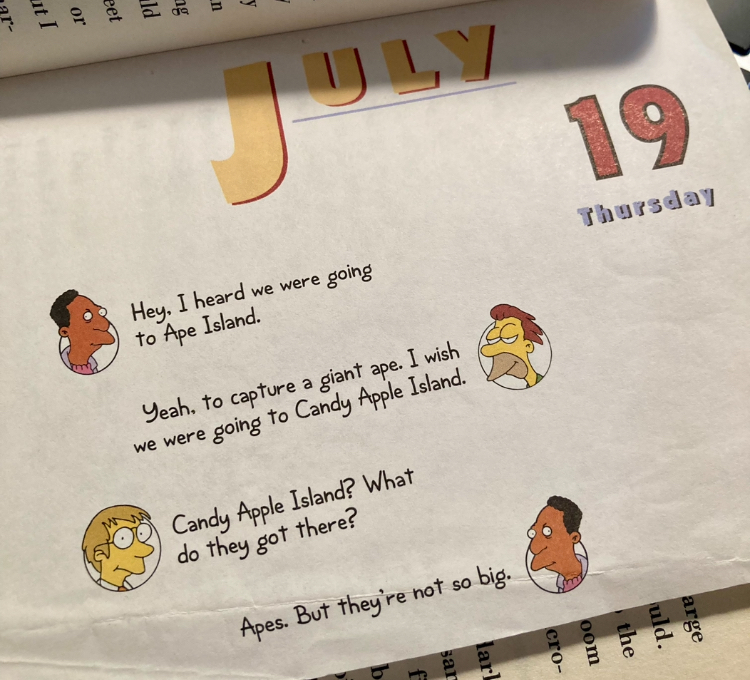 JULY
19
Thursday
Hey, I heard we were going
to Ape Island.
Yeah, to capture a giant ape. I wish
we were going to Candy Apple Island.
Candy Apple Island? What
do they got there?
Apes. But they're not so big.
ut I
or
eet
uld
ng
in
y
arge
uld.
the
oom
cro-